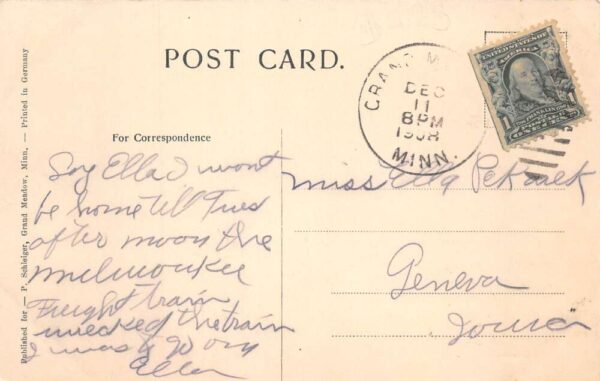 POST CARD.
GRAND M
DEC
11
8PM
1908
MINN.
UNITED STATES OF
AMERICA
1 FRANKLIN 1
For Correspondence
Say Ella I wont
be home till Tues
after noon the
milwaukee
Freight train
wrecked the train
I was to go on
Ella
Miss Ella Pekarek
Geneva
Iowa
Published for — P. Schleiger, Grand Meadow, Minn. — Printed in Germany